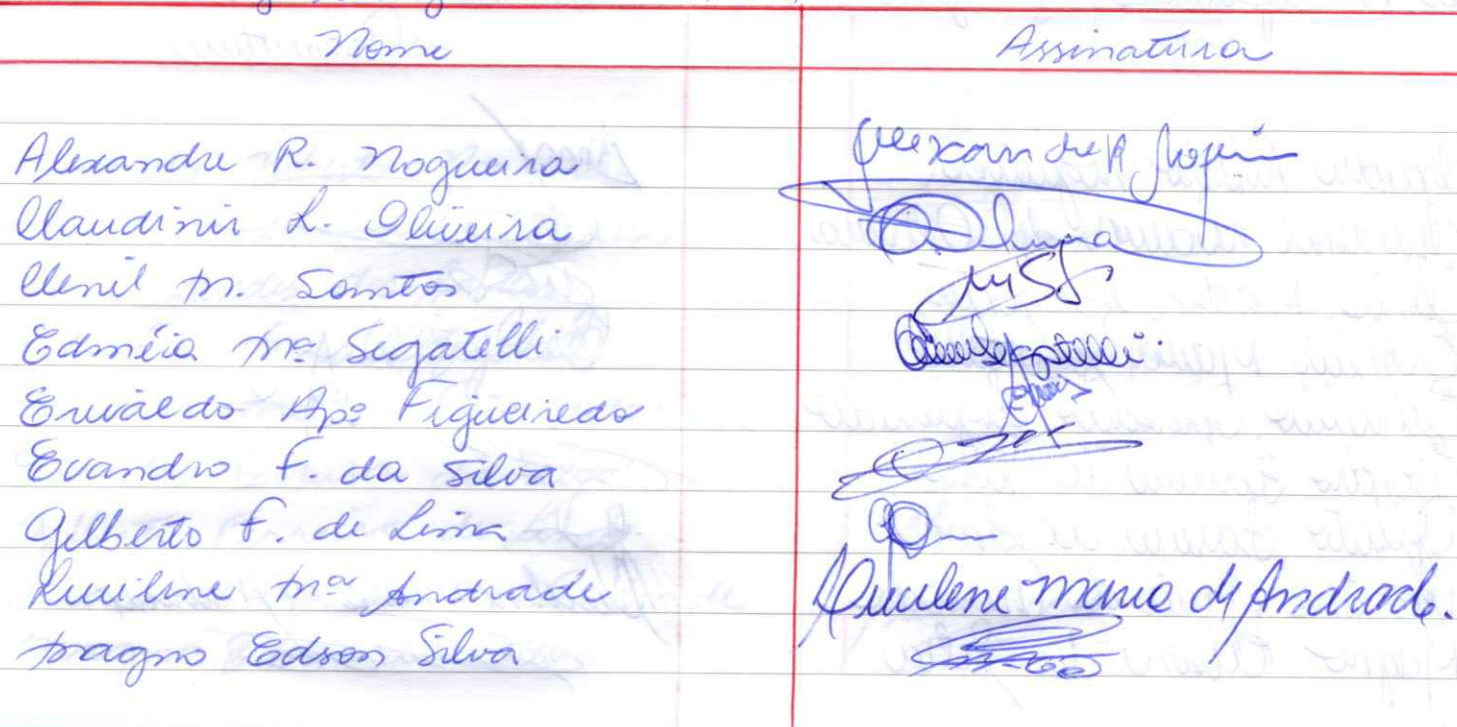 Nome Assinatura
Alexandre R. Nogueira Alexandre R Nogueira
Claudinir L. Oliveira
Clenil M. Santos
Edméia Mª Segatelli
Erivaldo Apº Figueiredo
Evandro F. da Silva
Gilberto F. de Lima
Lucilene Mª Andrade Lucilene Maria de Andrade.
Magno Edson Silva